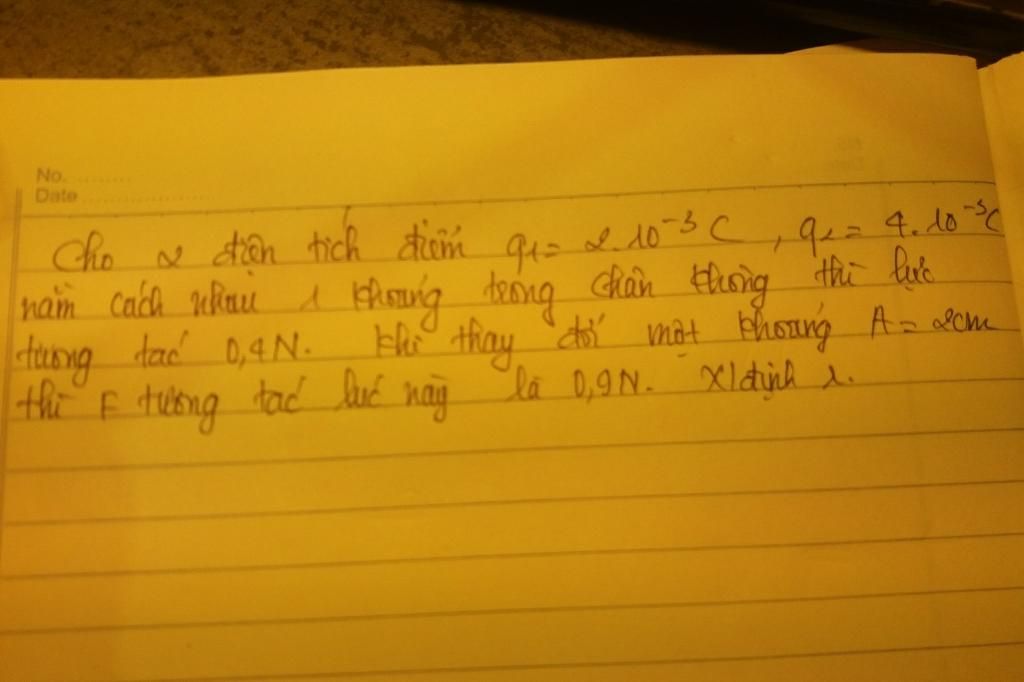 No. ........
Date ....................
Cho 2 điện tích điểm q1 = 2.10⁻³ C , q2 = 4.10⁻³ C
nằm cách nhau 1 khoảng trong chân không thì lực
tương tác 0,4N. Khi thay đổi một khoảng A = 2cm
thì F tương tác lúc này là 0,9N. X/định r.